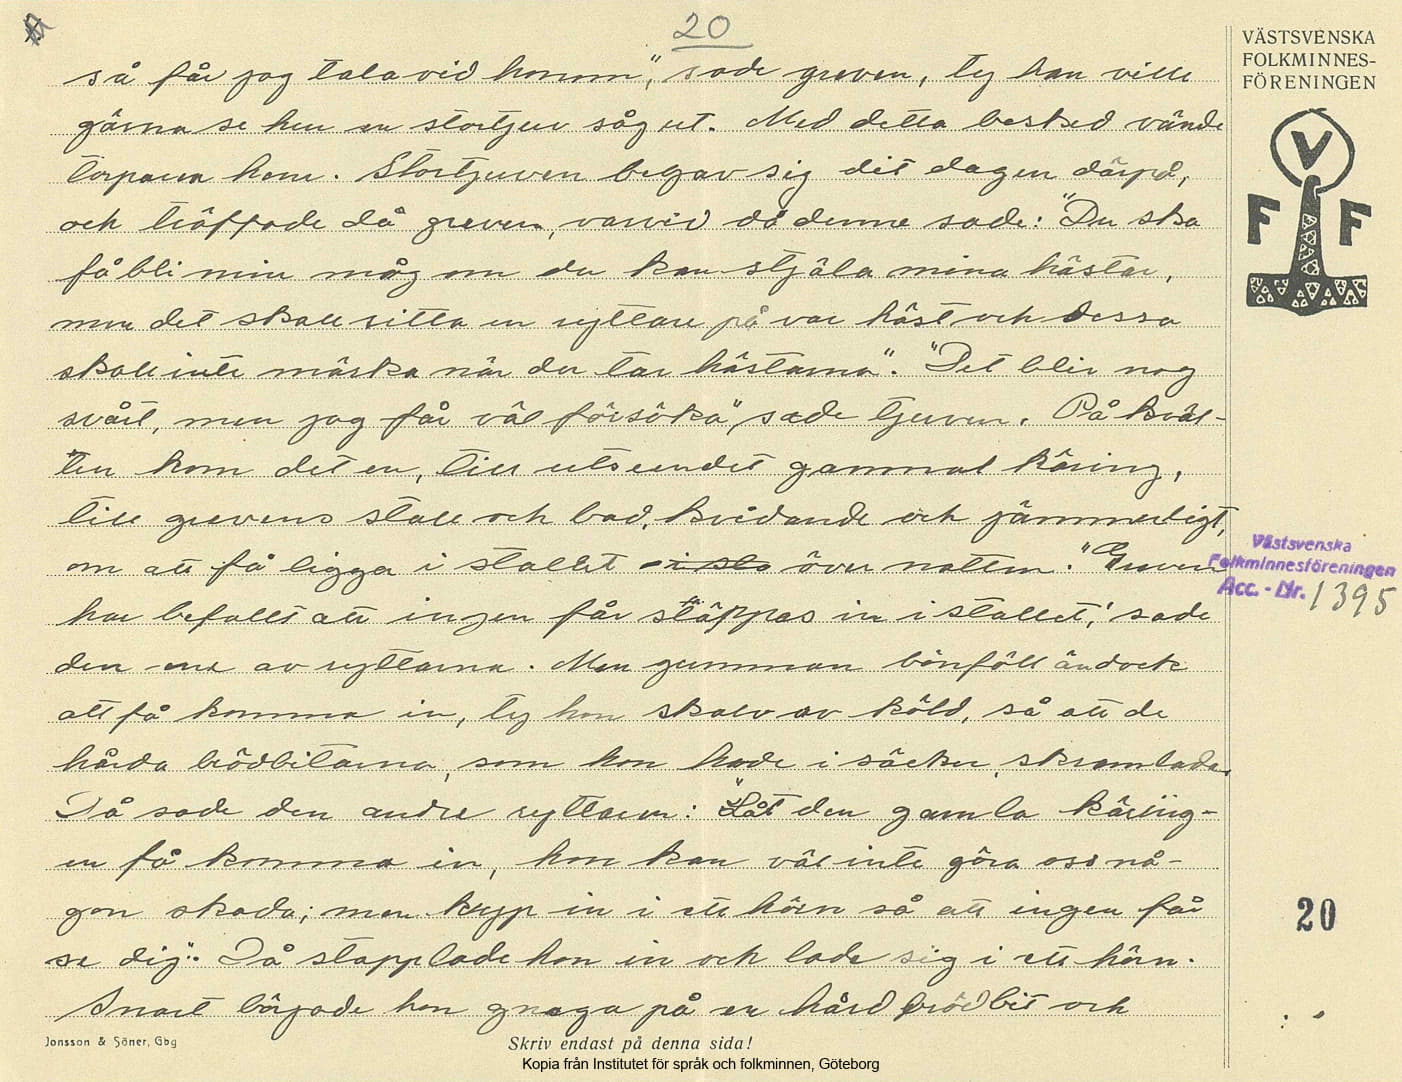 20
VÄSTSVENSKA
FOLKMINNES-
FÖRENINGEN
så får jag tala vid honom", sade greven, ty han ville
gärna se hur en stortjuv såg ut. Med detta besked vände
torparen hem. Stortjuven begav sig dit dagen därpå,
och träffade då greven, varvid då denne sade: "Du ska
få bli min måg om du kan stjäla mina hästar,
men det skall sitta en ryttare på var häst och dessa
skall inte märka när du tar hästarna". "Det blir nog
svårt, men jag får väl försöka", sade tjuven. På kväl-
len kom det en, till utseendet gammal käring,
till grevens stall och bad, kvidande och jämmerligt,
om att få ligga i stallet över natten. "Greven
har befallt att ingen får släppas in i stallet", sade
den ene av ryttarna. Men gumman bönföll ändock
att få komma in, ty hon skalv av köld, så att de
hårda brödbitarna, som hon hade i säcken, skramlade.
Då sade den andre ryttaren: "Låt den gamla käring-
en få komma in, hon kan väl inte göra oss nå-
gon skada; men kryp in i ett hörn så att ingen får
se dig". Då stapplade hon in och lade sig i ett hörn.
Snart började hon gnaga på en hård brödbit och
V
F F
Västsvenska
Folkminnesföreningen
Acc. - Nr. 1395
20
Jonsson & Söner, Gbg
Skriv endast på denna sida!
Kopia från Institutet för språk och folkminnen, Göteborg